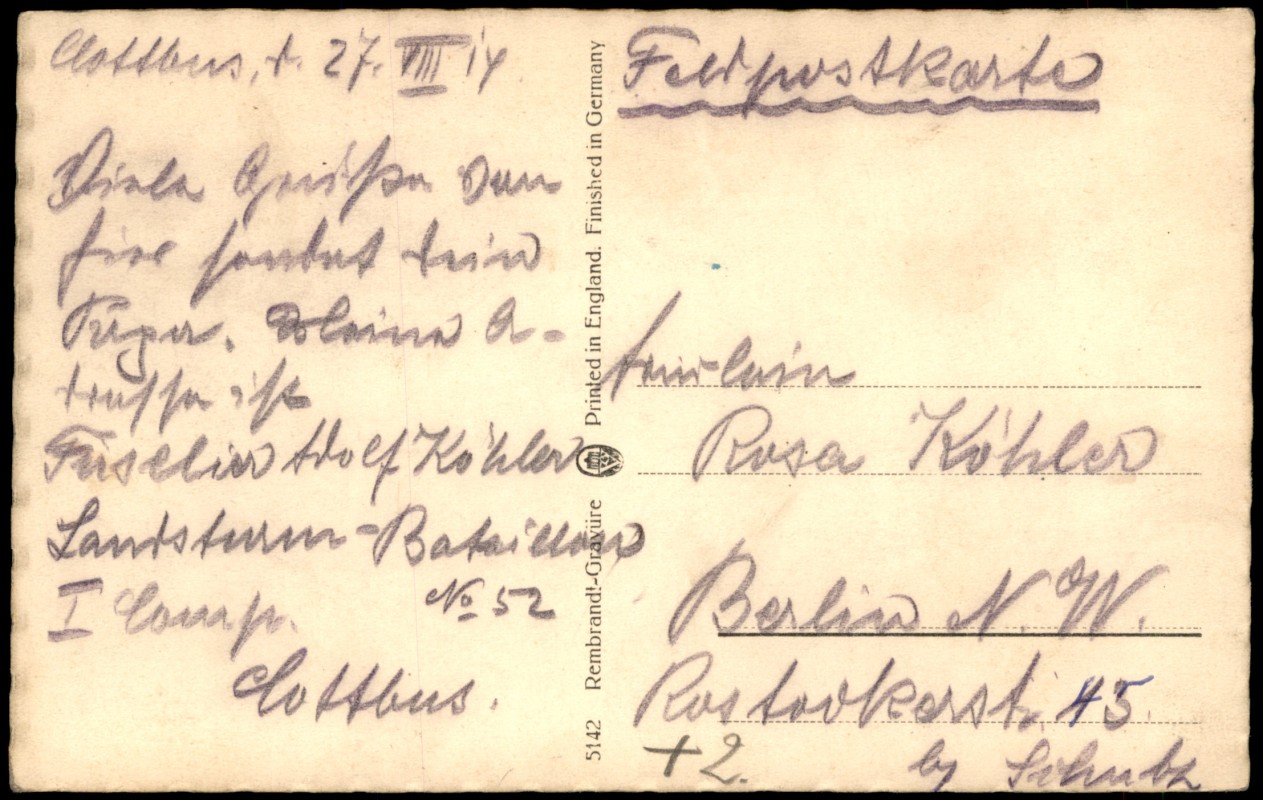 Cottbus, d. 27. VIII 14
Viele Grüße von
hier sendet dein
Meine A-
dresse ist
Füselier Adolf Köhler
Landsturm-Bataillon
I Comp. No 52
Cottbus.
5142 Rembrandt-Gravüre Printed in England. Finished in Germany
Feldpostkarte
Fräulein
Rosa Köhler
Berlin N.W.
Rostockerst. 45
by Schultz
+2.